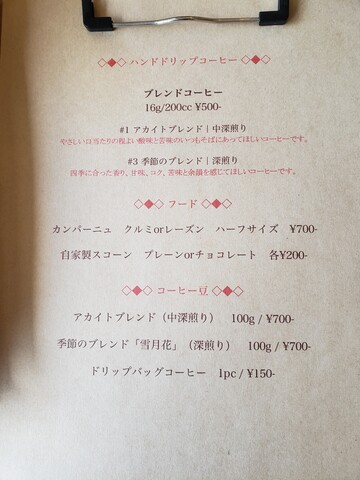 ◇◆◇ ハンドドリップコーヒー ◇◆◇
ブレンドコーヒー
16g/200cc ¥500-
#1 アカイトブレンド | 中深煎り
やさしい口当たりの程よい酸味と苦味のいつもそばにあってほしいコーヒーです。
#3 季節のブレンド | 深煎り
四季に合った香り、甘味、コク、苦味と余韻を感じてほしいコーヒーです。
◇◆◇ フード ◇◆◇
カンパーニュ クルミorレーズン ハーフサイズ ¥700-
自家製スコーン プレーンorチョコレート 各¥200-
◇◆◇ コーヒー豆 ◇◆◇
アカイトブレンド（中深煎り） 100g / ¥700-
季節のブレンド「雪月花」（深煎り） 100g / ¥700-
ドリップバッグコーヒー 1pc / ¥150-